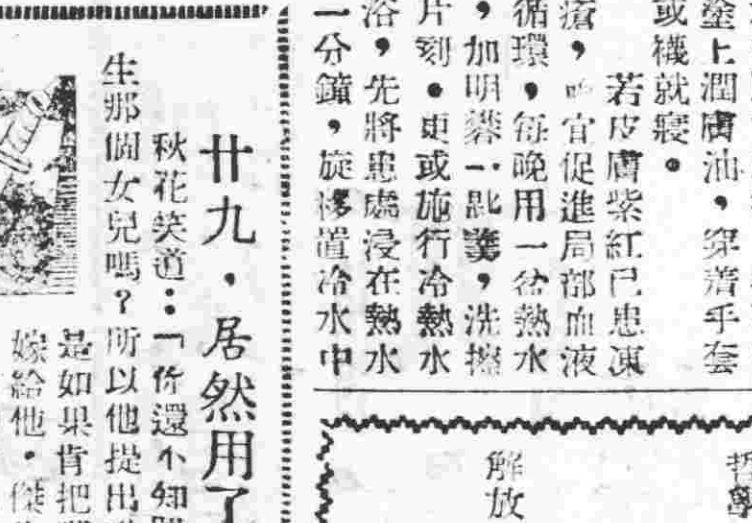 塗上潤膚油，穿着手套
或襪就寢。
若皮膚紫紅已患凍
瘡，宜促進局部血液
循環，每晚用一盆熱水
，加明礬一匙羹，洗擦
片刻。更或施行冷熱水
浴，先將患處浸在熱水
一分鐘，旋移置冷水中
哲學
解放
廿九．居然用了
秋花笑道：「你還不知
生那個女兒嗎？所以他提出
是如果肯把
嫁給他。傑